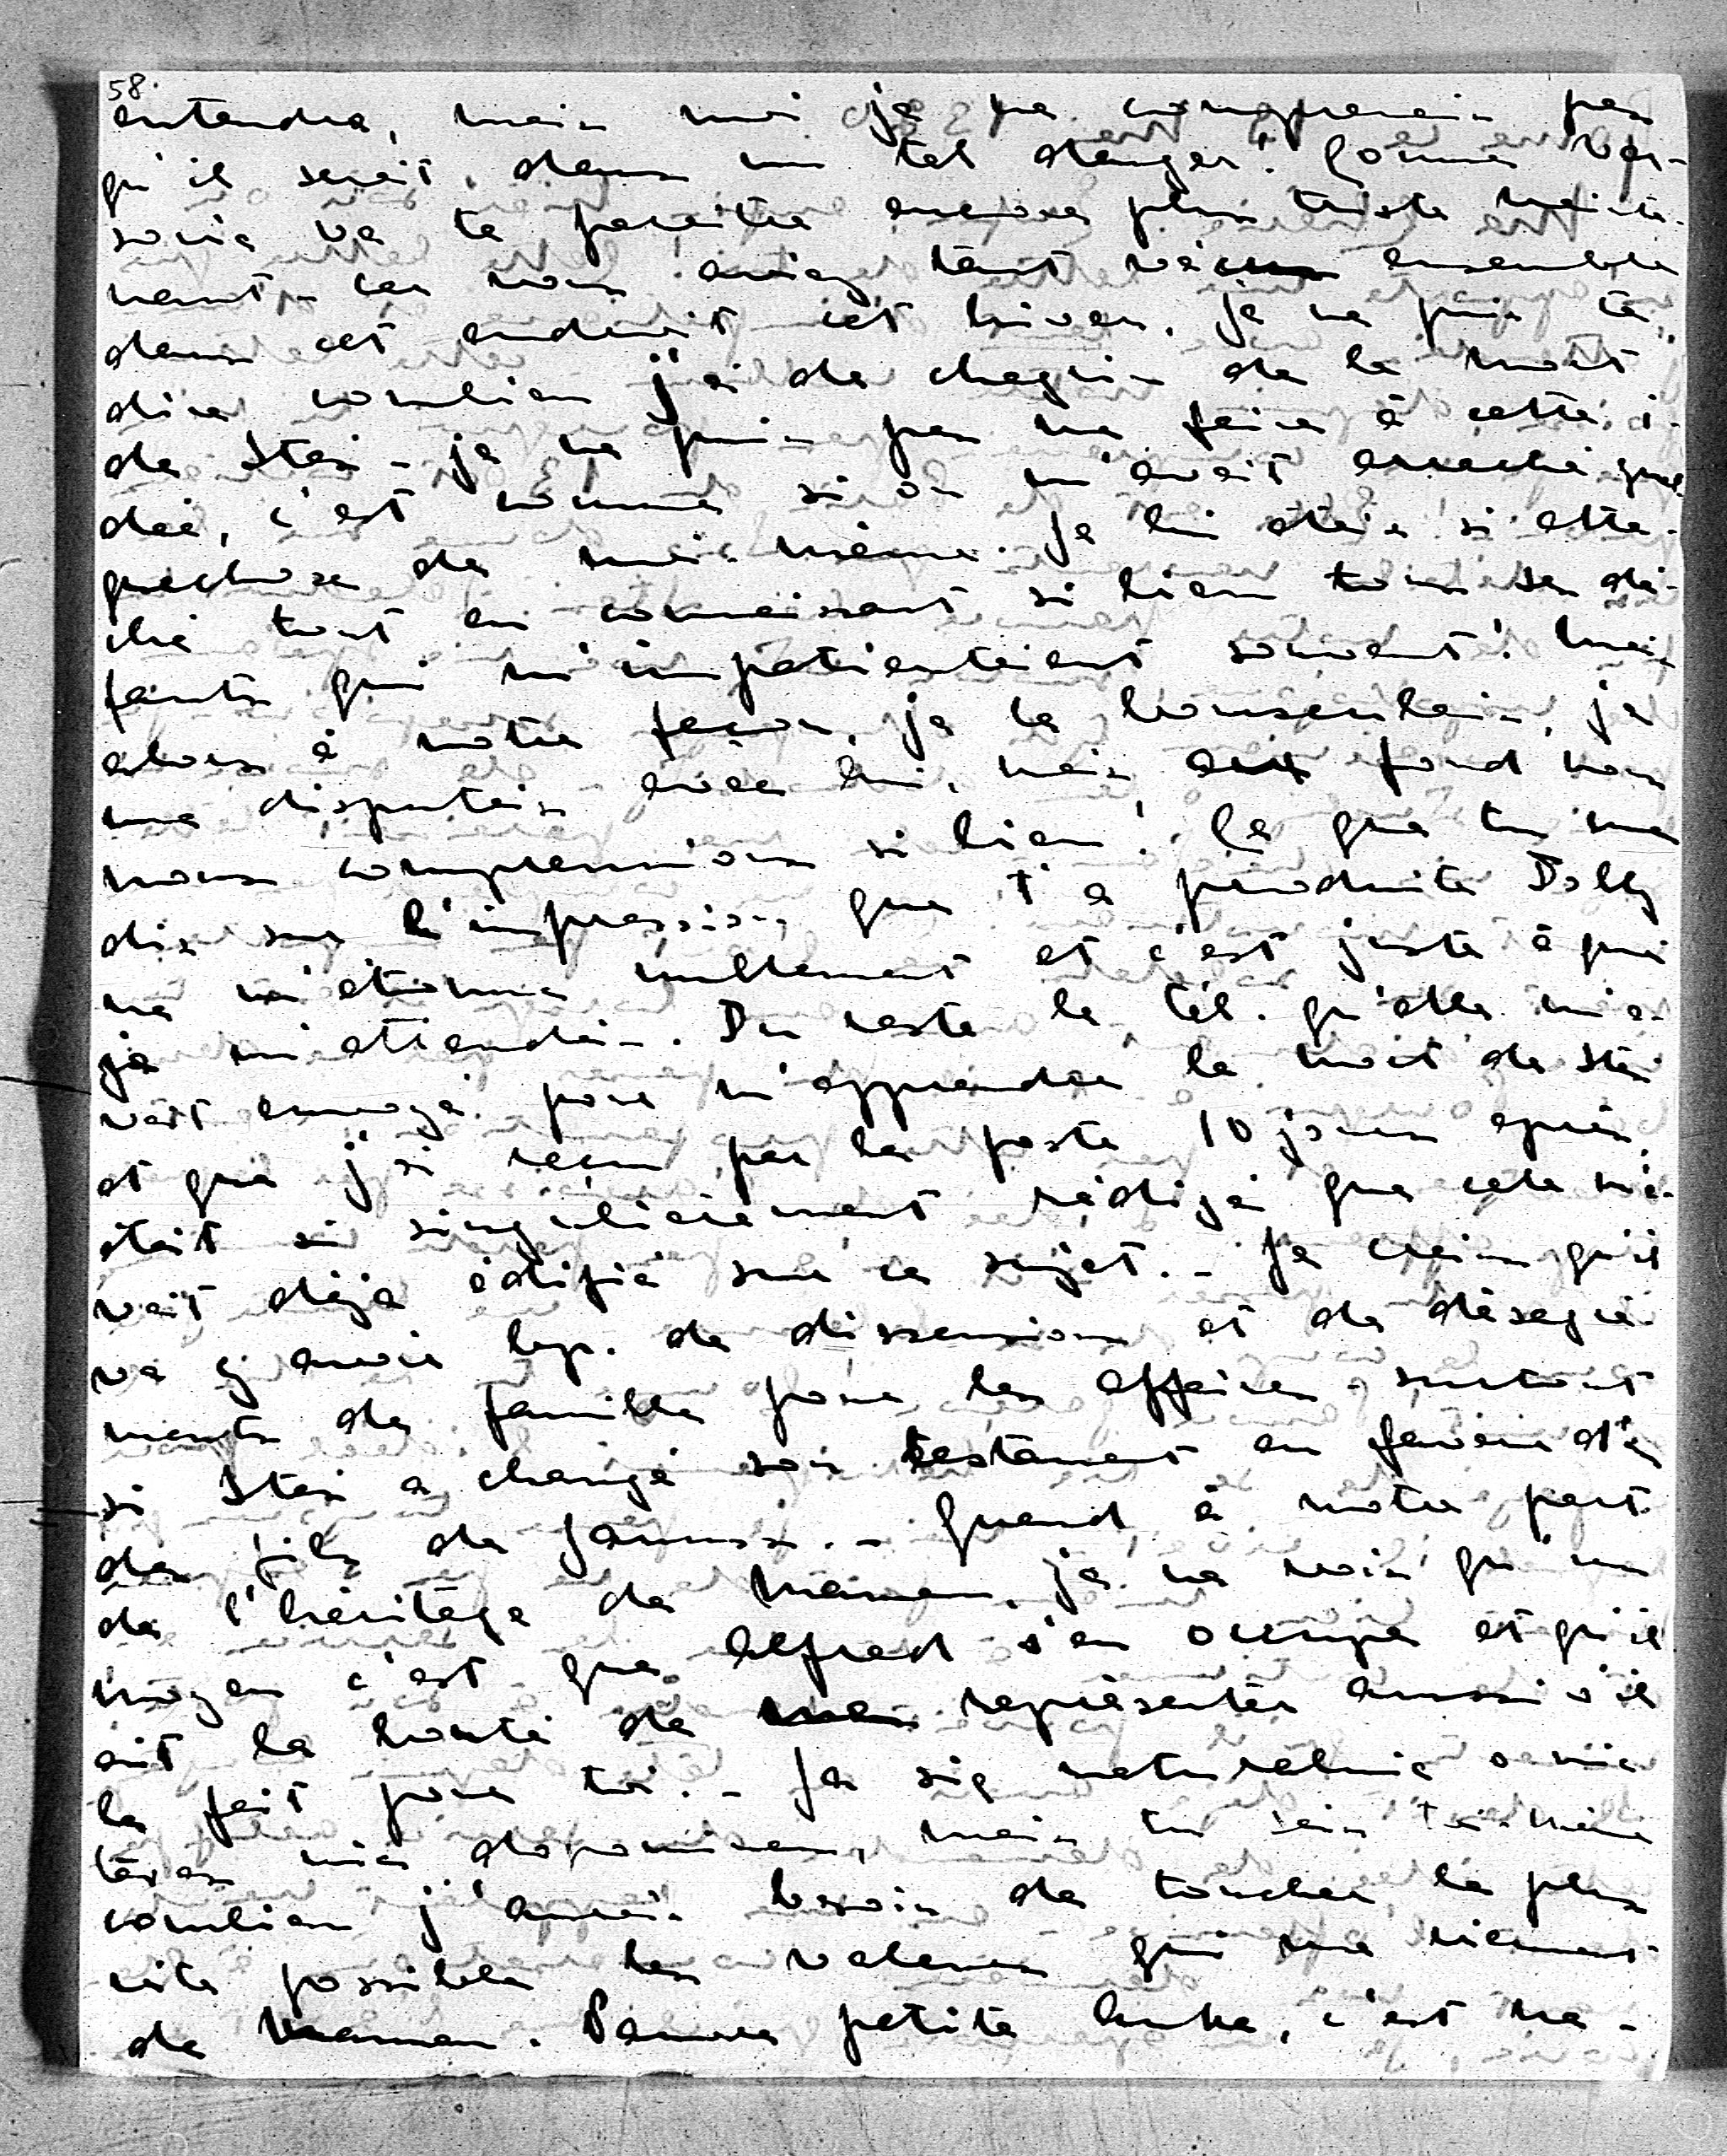 58.
entendra, mais moi je ne comprenais pas
qu'il serait dans un tel danger! Comme Var-
sovie va te paraître encore plus triste mainte-
nant - car nous avions tant vécus ensemble
dans cet endroit cet hiver. Je ne puis te
dire combien j'ai de chagrin de la mort
de Stas - je ne puis pas me faire à cette i-
dée, c'est comme si on m'avait arraché quel-
quechose de moi-même. Je lui étais si atta-
ché tout en connaissant si bien tous ses dé-
fauts qui m'impatientaient souvent! Mais
alors à notre façon, je le houspillais, je
me disputais avec lui, mais au fond nous
nous comprenions si bien! Ce que tu me
dis sur l'impression que t'a produite Dolly
ne m'étonne nullement et c'est juste à quoi
je m'attendais. Du reste le tél. qu'elle m'a-
vait envoyé pour m'apprendre la mort de Stas
et que j'ai reçu par la poste 10 jours après,
était si singulièrement rédigé que cela m'a-
vait déjà édifié sur ce sujet. - Je crains qu'il
va y avoir bcp. de dissensions et de désagré-
ments de famille pour les affaires - surtout
si Stas a changé son testament en faveur d'un
des fils de Janusz. - Quand à notre part
de l'héritage de Maman, je ne vois qu'un
moyen c'est que Alfred s'en occupe et qu'il
ait la bonté de me représenter aussi s'il
le fait pour toi. - Ja się naturalnie o nic
teraz nie dopominam, mais tu sais toi-même
combien j'aurais besoin de toucher le plus
vite possible les valeurs qui me viennent
de Maman. Pauvre petite Anka, c'est na-